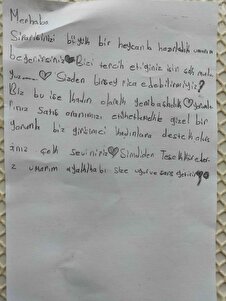 Merhaba
Siparişinizi büyük bir heycanla hazırladık umarım
beğenirsiniz♡Bizi tercih ettiğiniz için çok mutlu
yuz ♡ Sizden birşey rica edebilirmiyiz?
Biz bu işe kadın olarak yeni başladık♡
nız satış oranımızı güzel bir
yorumla biz girişimci kadınlara destek olur
sanız çok seviniriz♡Şimdiden Teşekkür eder
z umarım ayakkabı size uğur ve şans getirir